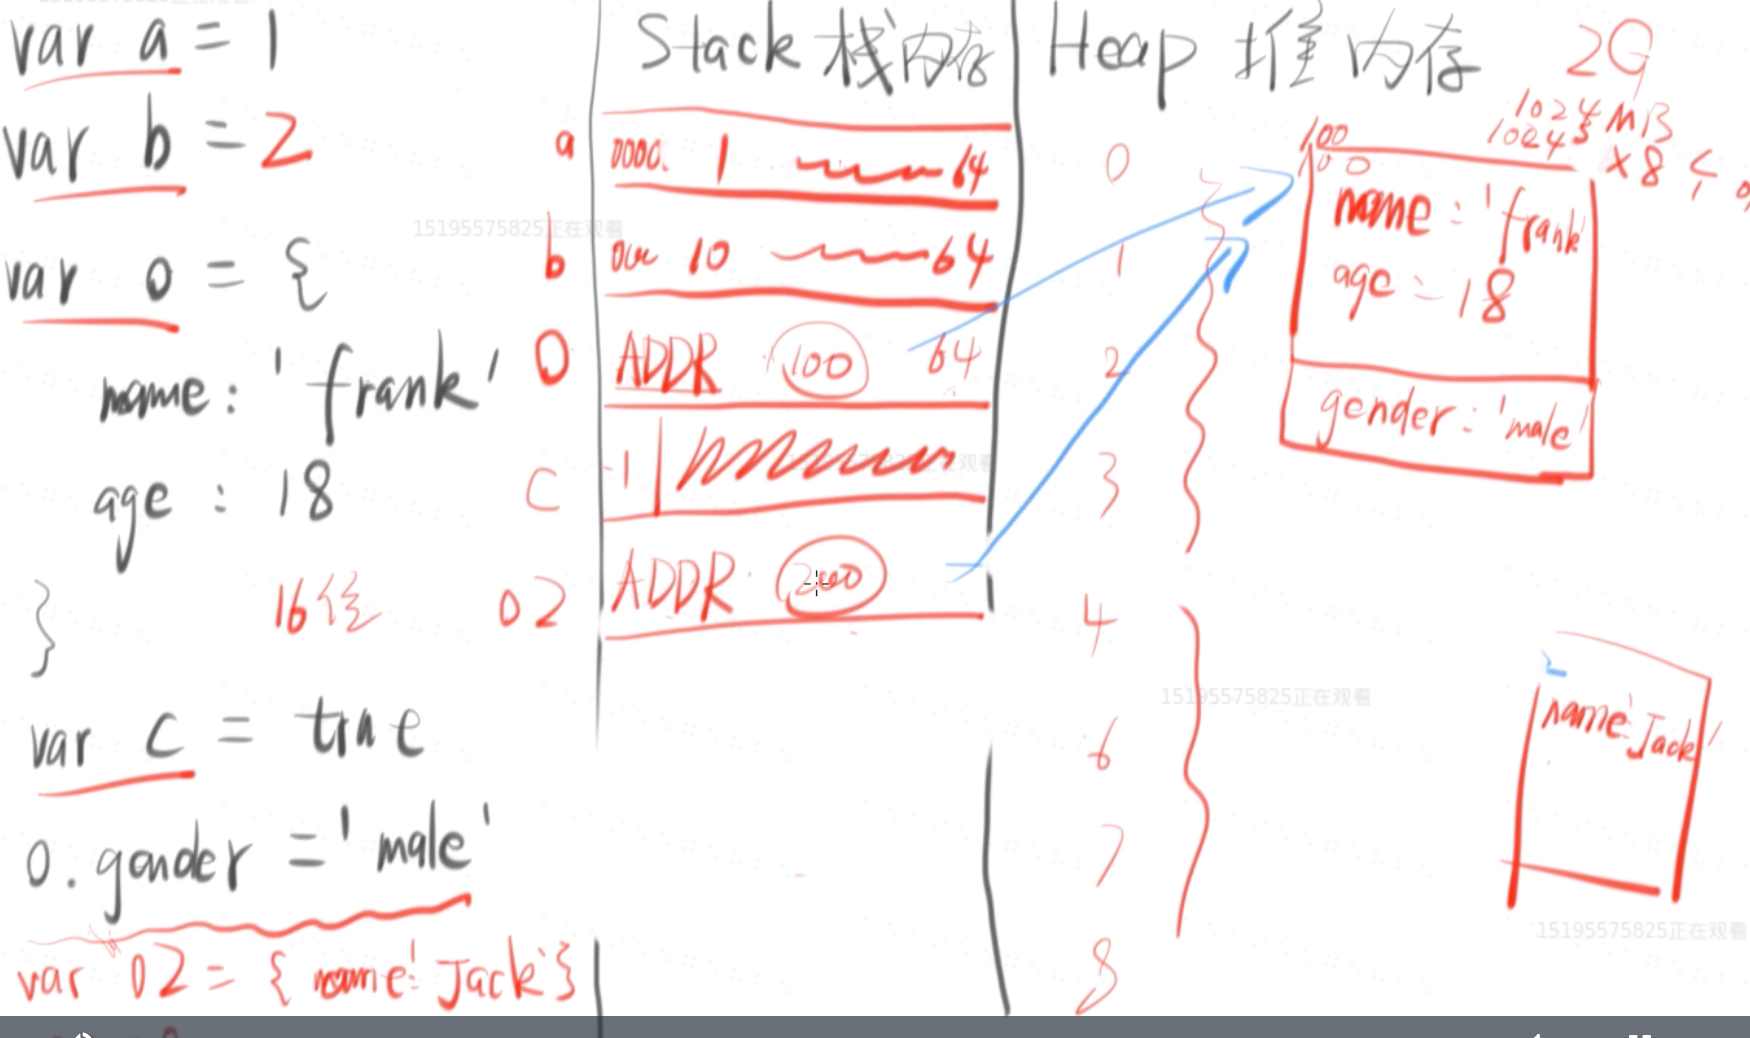 var a = 1
var b = 2
var o = {
name: 'frank'
age : 18
}
16位
var c = true
o.gender = 'male'
var o2 = { name: 'Jack' }
Stack 栈内存
a 0000. 1 64
b 10 64
O ADDR 100 64
c 1
o2 ADDR
Heap 堆内存 2G
1024 MB
1024
×8
0
1
2
3
4
6
7
8
100
100
name: 'frank'
age : 18
gender: 'male'
name: 'Jack'
15195575825正在观看
15195575825正在观看
15195575825正在观看
15195575825正在观看